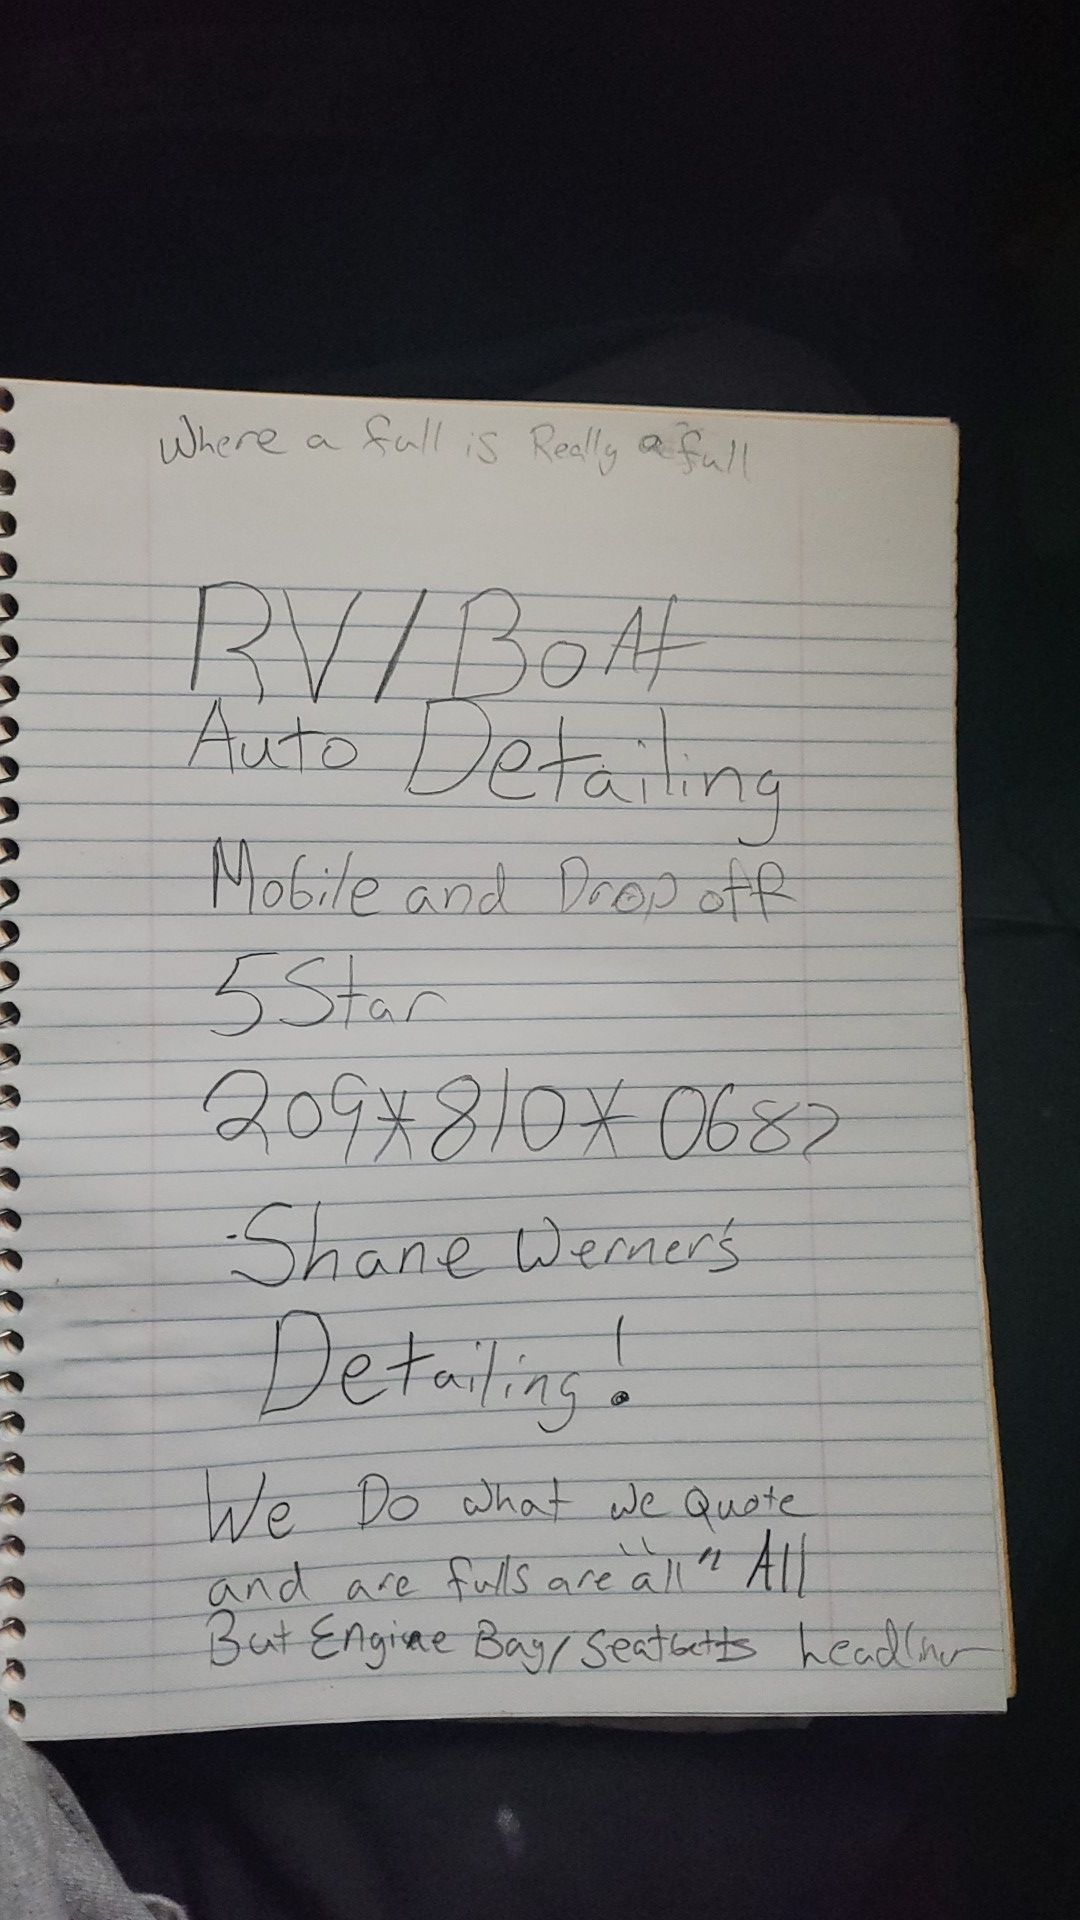 Where a full is Really a full
RV/BoAt
Auto Detailing
Mobile and Drop off
5 Star
209*810*0682
Shane Werner's
Detailing!
We Do what we Quote
and are fulls are "all" All
But Engine Bay/seatbelts headliner